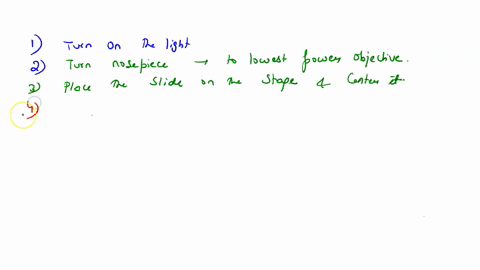 1) Turn on the light
2) Turn nosepiece → to lowest power objective.
3) Place the slide on the stage & center it
4)